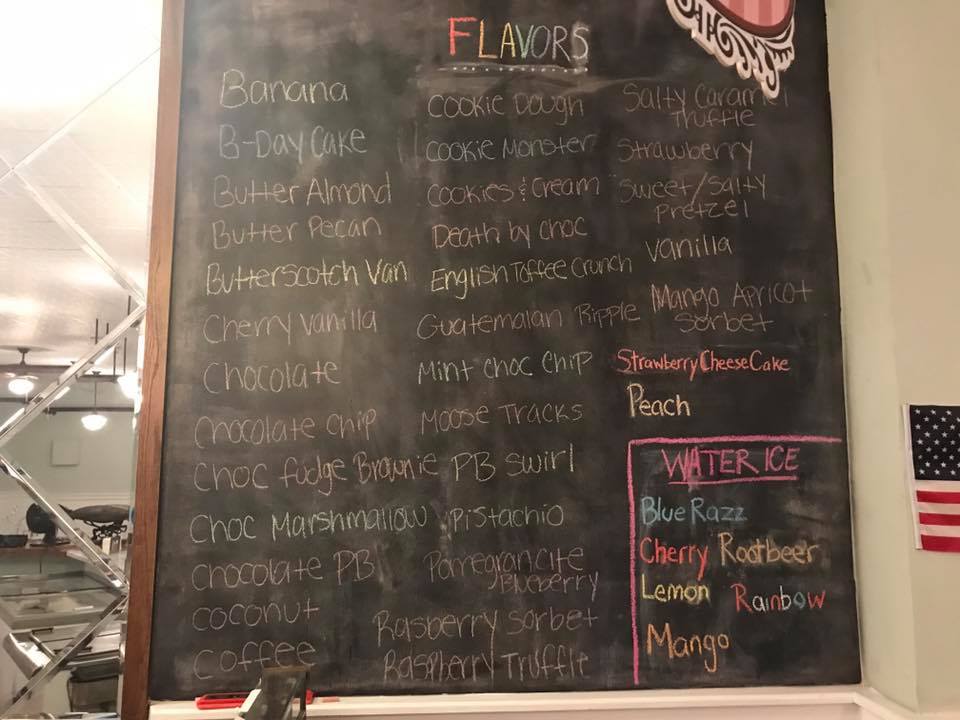 FLAVORS
Banana
B-Day Cake
Butter Almond
Butter Pecan
Butterscotch Van
Cherry Vanilla
Chocolate
Chocolate Chip
Choc fudge Brownie
Choc Marshmallow
Chocolate PB
Coconut
Coffee
Cookie Dough
Cookie Monster
Cookies & Cream
Death by choc
English Toffee Crunch
Guatemalan Ripple
Mint Choc Chip
Moose Tracks
PB Swirl
Pistachio
Pomegranite
Blueberry
Rasberry Sorbet
Raspberry Truffle
Salty Caramel
Truffle
Strawberry
Sweet/Salty
Pretzel
Vanilla
Mango Apricot
Sorbet
Strawberry CheeseCake
Peach
WATER ICE
Blue Razz
Cherry Rootbeer
Lemon Rainbow
Mango